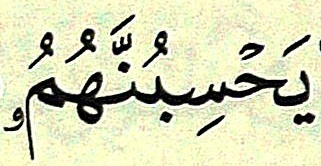 يَحْسِبُنَّهُمُۥ